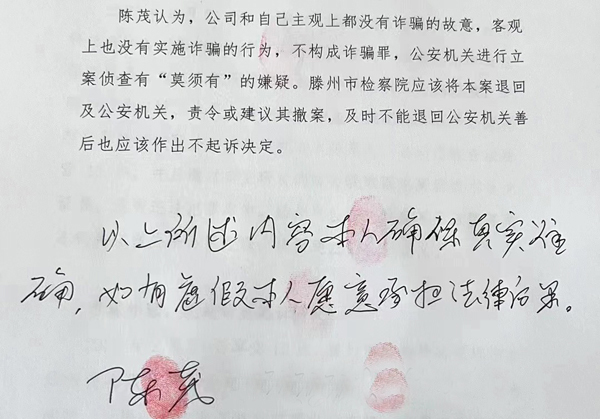 陈茂认为，公司和自己主观上都没有诈骗的故意，客观
上也没有实施诈骗的行为，不构成诈骗罪，公安机关进行立
案侦查有“莫须有”的嫌疑。滕州市检察院应该将本案退回
及公安机关，责令或建议其撤案，及时不能退回公安机关善
后也应该作出不起诉决定。
以上所述内容本人确保真实准
确，如有虚假本人愿意承担法律后果。
陈茂